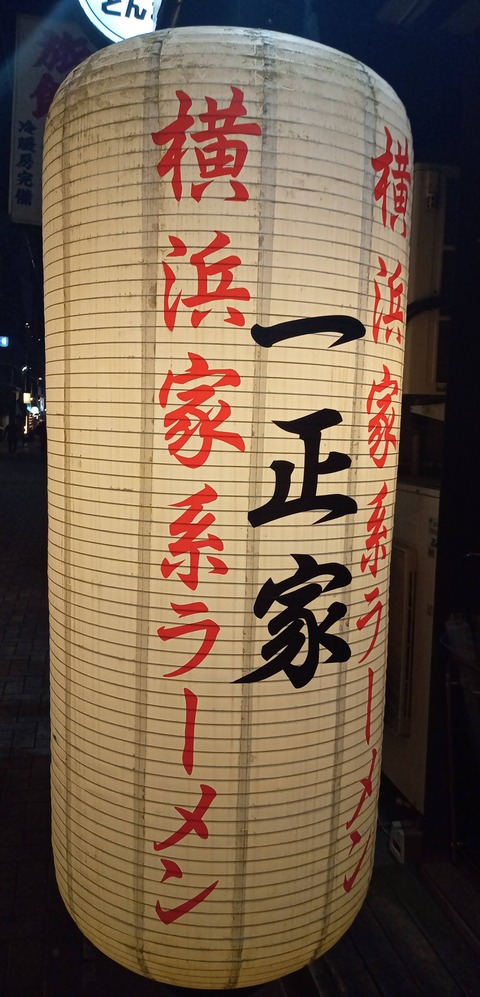 横浜家系ラーメン
一正家
横浜家系ラーメン
冷暖房完備
とん